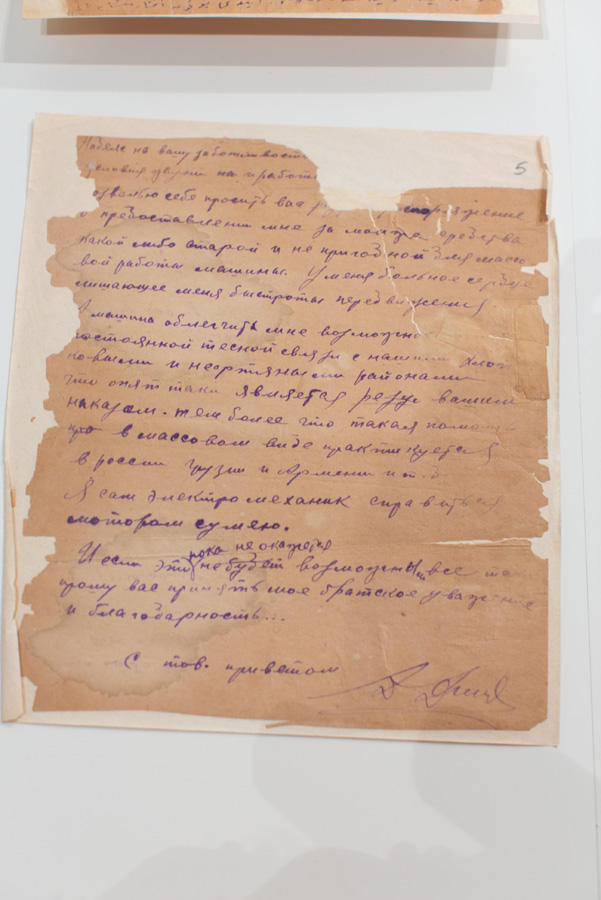 5
Надеясь на вашу заботливость
условия
озволю себе просить вас распоряжение
о предоставлении мне за мои средства
какой либо старой и не пригодной для массо
вой работы машины. У меня больное сердце
лишающее меня быстроты передвижения.
А машина облегчить мне возможно
постоянной тесной связи с нашими хлоп
ковыми и нефтяными районами
что опят таки является вашим
наказом. тем более что такая помощ
в массовом виде практикуется
в россии грузии и Армении и т.д
Я сам электромеханик справиться
мотором сумею.
пока не окажется
И если это не будет возможным все то
прошу вас принять мое братское уважение
и благодарность...
С тов. приветом